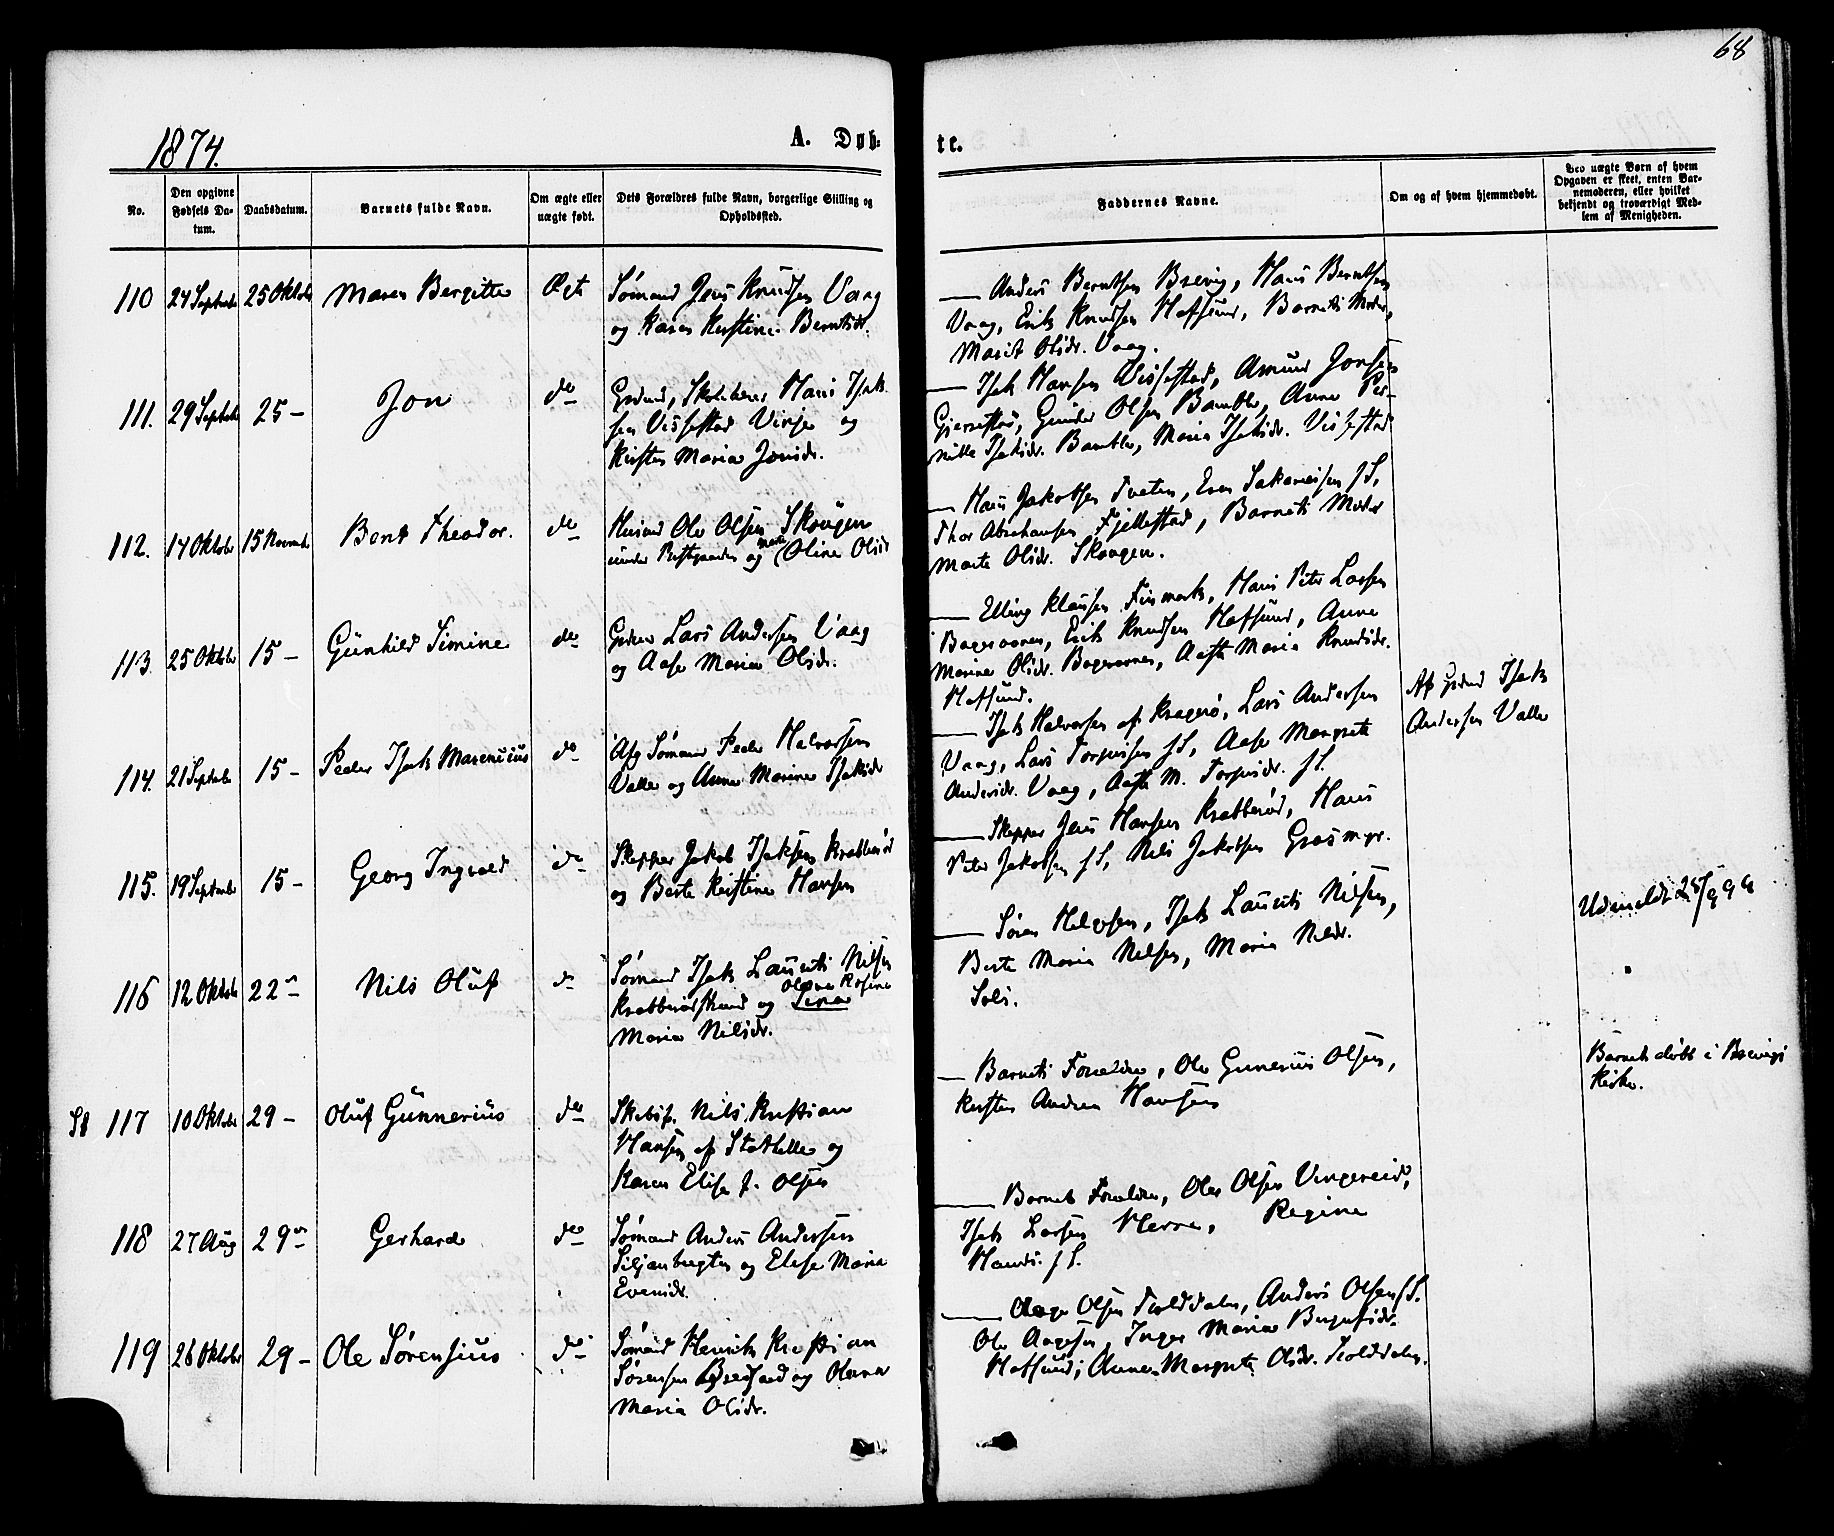 68
1874.
A. Døb-
te.
No.
Den opgivne Fødsels Da-
tum.
Daabsdatum.
Barnets fulde Navn.
Om ægte eller
uægte født.
Dets Forældres fulde Navn, borgerlige Stilling og
Opholdssted.
Faddernes Navne.
Om og af hvem hjemmedøbt.
Ved uægte Børn af hvem
Opgaven er skeet, enten Bar-
nemoderen, eller hvilket
bekjendt og troværdigt Med-
lem af Menigheden.
110 24 Septembr 25 Oktobr Maren Bergitte Ægte
Sømand Jens Knudsen Vaag
og Karen Kirstine Berntsdr.
— Anders Berntsen Brevig, Hans Berntsen
Vaag, Erik Knudsen Hafsund, Barnets Moder,
Marit Olsdr. Vaag.
111. 29 Septembr 25 — Jon do
Hans Isak-
sen Vissestad Virsje og
Kirsten Maria Jonsdr.
— Isak Hansen Vissestad, Amund Jonsen
Gjerrestad, Gunder Olsen Bamble, Anne Per-
nille Isaksdr. Bamble, Maria Isaksdr. Vissestad
112. 14 Oktobr 15 Novembr Bent Theodor. do
Husmd Ole Olsen Skougen
under Prestgaarden og Marte Oline Olsdr
— Hans Jakobsen Tveten, Even Sakariassen f S,
Thor Abrahamsen Fjellestad, Barnets Moder
Marte Olsdr. Skougen.
113. 25 Oktobr 15 — Gunhild Simine do
Lars Andersen Vaag
og Aase Maria Olsdr.
— Elling Klausen Finmark, Hans Peter Larsen
Erik Knudsen Hafsund, Anne
Marine Olsdr. Aaste Maria Knudsdr.
Hafsund.
114. 21 Septembr 15 — Peder Isak Marenius do
Afg Sømand Peder Halvorsen
Valle og Anne Marine Isaksdr
— Isak Halvorsen af Kragerø, Lars Andersen
Vaag, Lars f S, Aase Margrete
Andersdr. Vaag, Aaste M. f S.
Af Isak
Andersen Valle
115. 19 Septembr 15 — Georg Ingvald do
Skipper Jakob Isaksen Krabberød
og Berte Kirstine Hansen
— Skipper Jens Hansen Krabberød, Hans
Peter Jakobsen f S, Nils Jakobsen Grasmyr.
Udmeldt 25/9 99
116 12 Oktobr 22 Nils Oluf do
Sømand Isak Laurits Nilsen
Krabberødstrand og Lina
Olava Rosine
Maria Nilsdr.
— Søren Helgesen, Isak Laurits Nilsen,
Berte Maria Nilsen, Maria Nilsdr.
117 10 Oktobr 29 — Oluf Gunnerius do
Nils Kristian
Hansen af Stathelle og
Karen Elise f. Olsen
— Barnets Forældre, Ole Gunerius Olsen,
Kirsten Andrea Hansen
Barnet døbt i Brevigs
Kirke.
118 27 Aug 29 Gerhard do
Sømand Anders Andersen
Siljanbugten og Elise Maria
Evensdr.
— Barnets Forældre, Ole Olsen Vingereid,
Isak Larsen Herre, Regine
Hansdr. f S.
119 26 Oktobr 29 — Ole Sørensius do
Sømand Henrik Kristian
Sørensen og Olava
Maria Olsdr.
— Aage Olsen Trolddalen, Anders Olsen f S.
Ole Aagesen, Inger Maria
Hafsund, Anne Margrete Olsdr. Trolddalen.